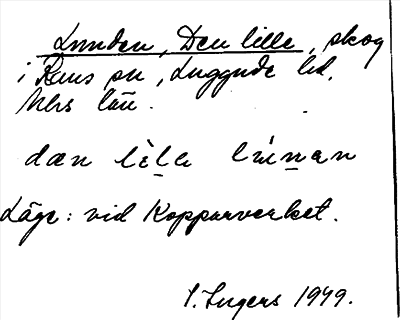 Lunden, Den lille, skog
i Reus sn, Luggude hd,
Mhs län.
dæn lila lúnan
Läge: vid Kopparverket.
I. Ingers 1949.